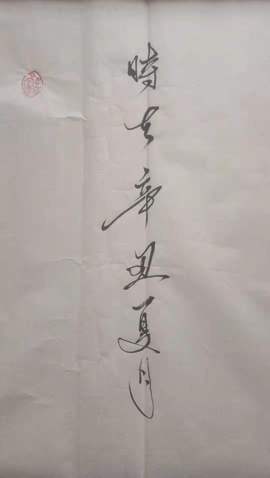 時在辛丑夏月